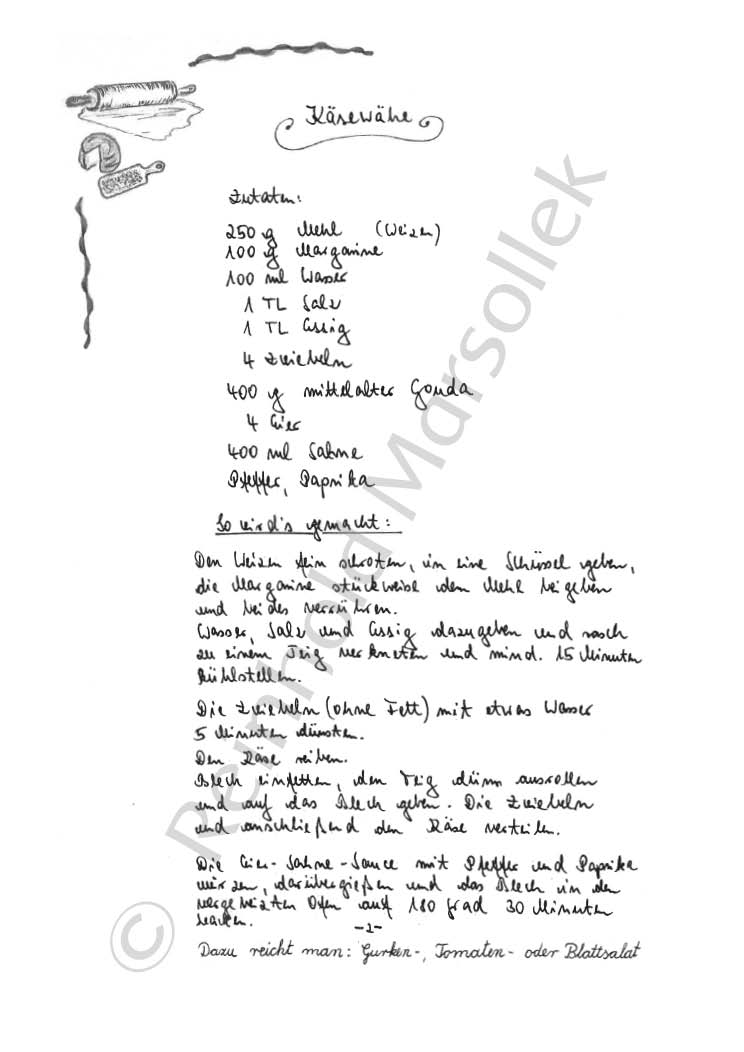 Käsewähe
Zutaten:
250 g Mehl (Weizen)
100 g Margarine
100 ml Wasser
1 TL Salz
1 TL Essig
4 Zwiebeln
400 g mittelalter Gouda
4 Eier
400 ml Sahne
Pfeffer, Paprika
So wird's gemacht:
Den Weizen fein schroten, in eine Schüssel geben,
die Margarine stückweise dem Mehl beigeben
und beides verrühren.
Wasser, Salz und Essig dazugeben und rasch
zu einem Teig verkneten und mind. 15 Minuten
kühlstellen.
Die Zwiebeln (ohne Fett) mit etwas Wasser
5 Minuten dünsten.
Den Käse reiben.
Blech einfetten, den Teig dünn ausrollen
und auf das Blech geben. Die Zwiebeln
und anschließend den Käse verteilen.
Die Eier-Sahne-Sauce mit Pfeffer und Paprika
würzen, darübergießen und das Blech in den
vorgeheizten Ofen auf 180 Grad 30 Minuten
backen.
-2-
Dazu reicht man: Gurken-, Tomaten- oder Blattsalat
© Reinhold Marsollek